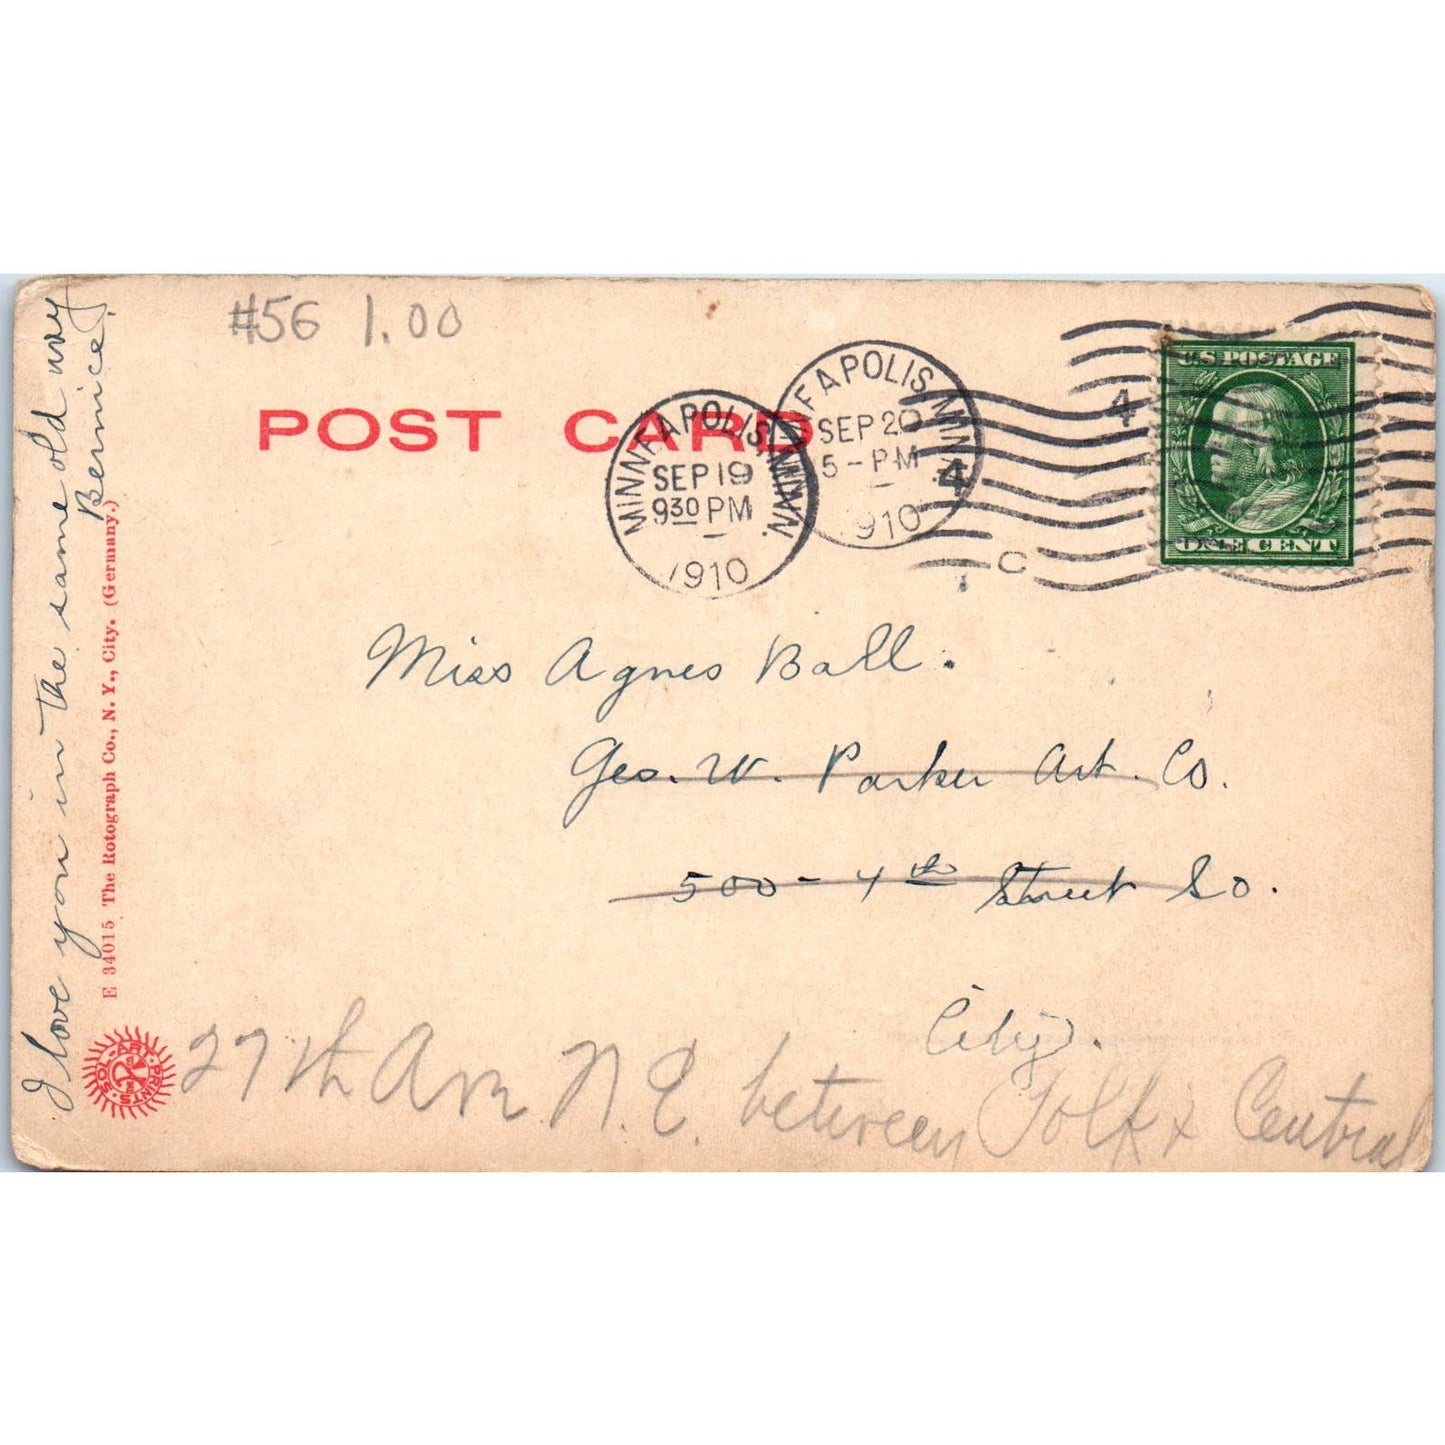 #56 1.00
POST CARD
MINNEAPOLIS, MINN.
SEP 19
930 PM
1910
MINNEAPOLIS, MINN.
SEP 20
5 - PM
1910
4
4
C
U.S. POSTAGE
ONE CENT
Miss Agnes Ball.
Geo. W. Parker Art. Co.
500 - 4th Street So.
City.
27th Ave N.E. between Polk & Central
I love you in the same old way
Bernice.
E 34015 The Rotograph Co., N. Y., City. (Germany.)
SOL-ART PRINTS